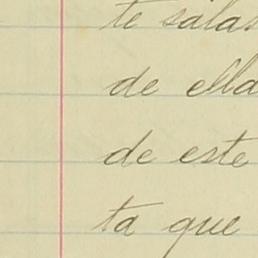 te salas
de ella
de este
ta que